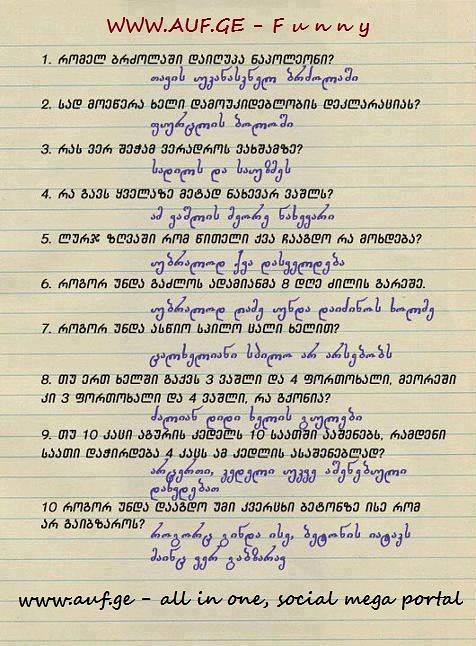 WWW.AUF.GE - Funny
1. რომელ ბრძოლაში დაიღუპა ნაპოლეონი?
თავის უკანასკნელ ბრძოლაში
2. სად მოეწერა ხელი დამოუკიდებლობის დეკლარაციას?
ფურცლის ბოლოში
3. რას ვერ შეჭამ ვერადროს ვახშამზე?
სადილს და საუზმეს
4. რა გავს ყველაზე მეტად ნახევარ ვაშლს?
ამ ვაშლის მეორე ნახევარი
5. ლურჯ ზღვაში რომ წითელი ქვა ჩააგდო რა მოხდება?
უბრალოდ ქვა დასველდება
6. როგორ უნდა გაძლოს ადამიანმა 8 დღე ძილის გარეშე.
უბრალოდ ღამე უნდა დაიძინოს ხოლმე
7. როგორ უნდა ასწიო სპილო ცალი ხელით?
ცალხელიანი სპილო არ არსებობს
8. თუ ერთ ხელში გაქვს 3 ვაშლი და 4 ფორთოხალი, მეორეში
კი 3 ფორთოხალი და 4 ვაშლი, რა გქონია?
ძალიან დიდი ხელის გულები
9. თუ 10 კაცი აგურის კედელს 10 საათში ააშენებს, რამდენი
საათი დაჭირდება 4 კაცს ამ კედლის ასაშენებლად?
არცერთი, კედელი უკვე აშენებული
დახვდებათ
10 როგორ უნდა დააგდო უმი კვერცხი ბეტონზე ისე რომ
არ გაიბზაროს?
როგორც გინდა ისე, ბეტონის იატაკს
მაინც ვერ გაბზარავ
www.auf.ge - all in one, social mega portal